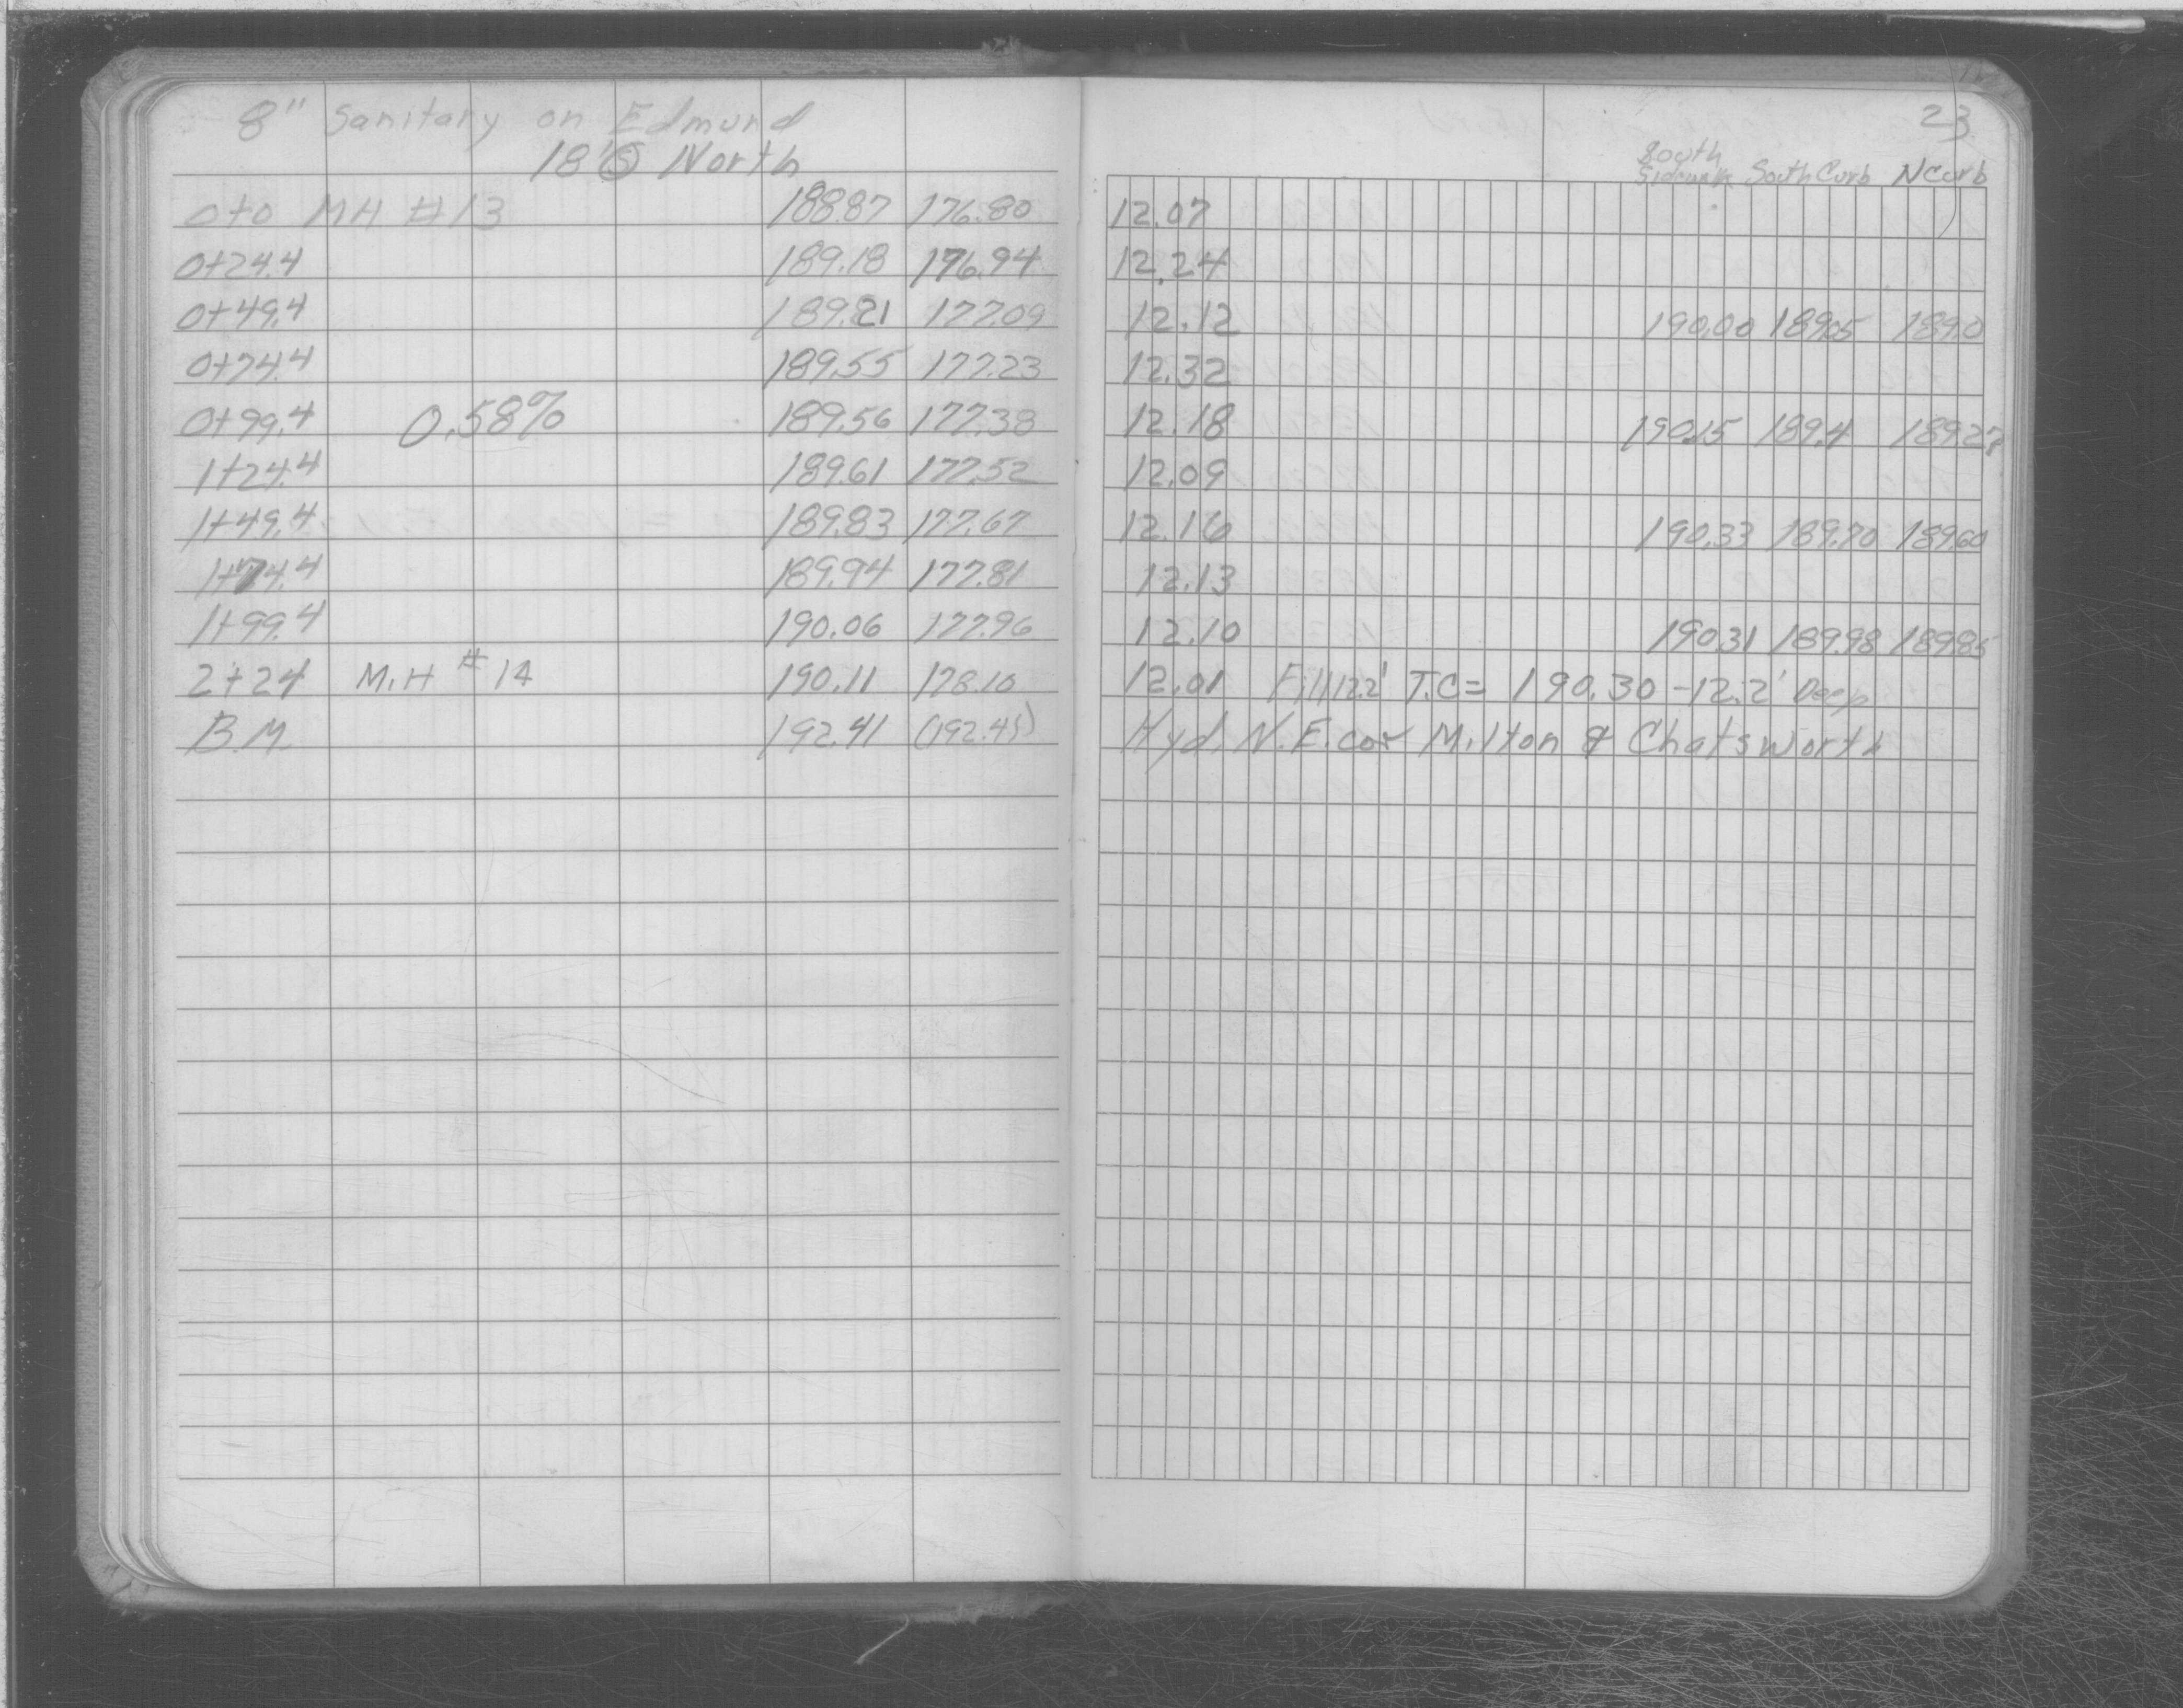 8" Sanitary on Edmund
18' Ⓢ North
23
South Sidewalk South Curb N Curb
0+0 MH #13 188.87 176.80 12.07
0+24.4 189.18 176.94 12.24
0+49.4 189.21 177.09 12.12 190.00 189.05 189.0
0+74.4 189.55 177.23 12.32
0+99.4 0.58% 189.56 177.38 12.18 190.15 189.4 189.27
1+24.4 189.61 177.52 12.09
1+49.4 189.83 177.67 12.16 190.33 189.70 189.60
1+74.4 189.94 177.81 12.13
1+99.4 190.06 177.96 12.10 190.31 189.98 189.85
2+24 M.H #14 190.11 178.10 12.01 Fill 12.2' T.C = 190.30 - 12.2' Deep
B.M. 192.41 (192.45) Hyd. N.E. cor Milton & Chatsworth